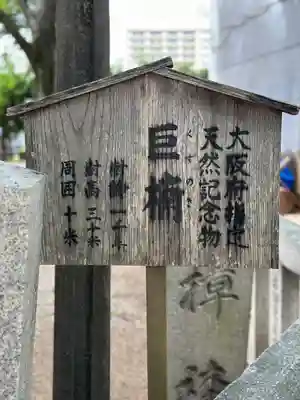 大阪府指定
天然記念物
くすのき
巨楠
樹齢一千年
樹高三十米
周囲十米